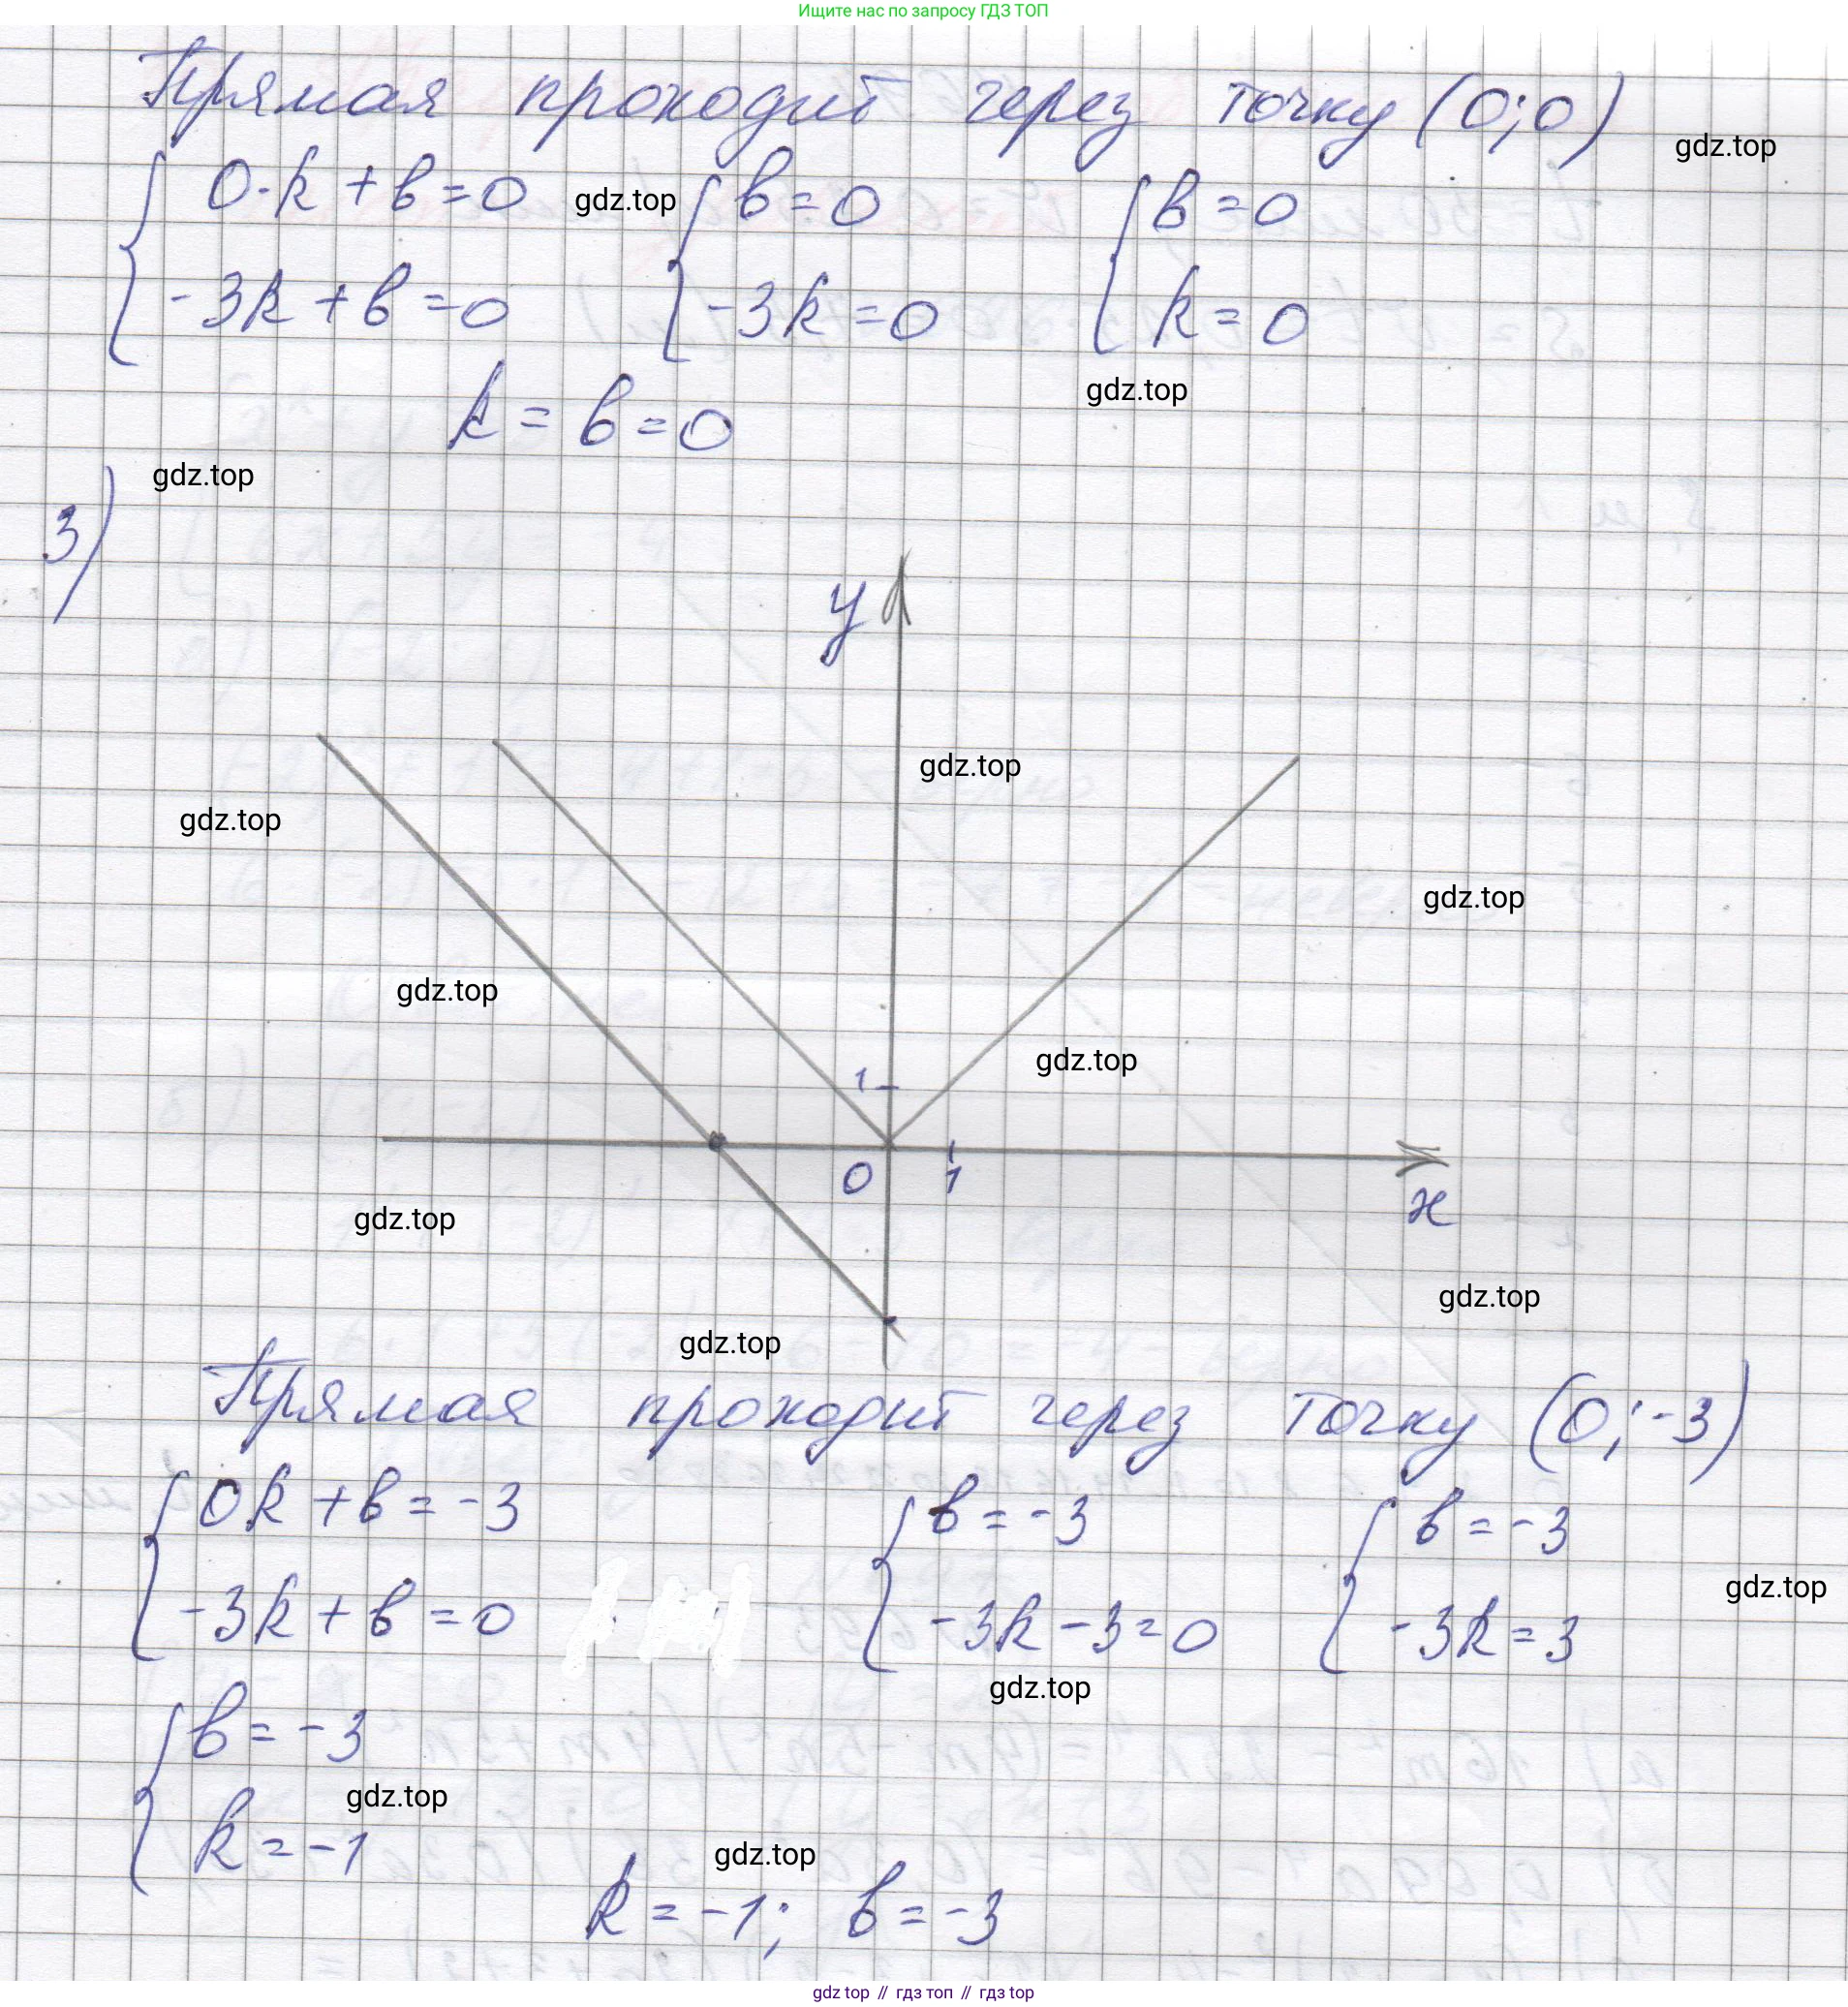 Ищите нас по запросу ГДЗ ТОП
Прямая проходит через точку (0;0)
gdz.top
{ 0·k + b = 0 gdz.top { b = 0 { b = 0
-3k + b = 0 -3k = 0 k = 0
gdz.top
k = b = 0
gdz.top
3)
y
gdz.top
gdz.top
gdz.top
gdz.top
1 gdz.top
0 1
x
gdz.top
gdz.top
gdz.top
Прямая проходит через точку (0;-3)
{ 0k + b = -3 { b = -3 { b = -3
-3k + b = 0 -3k - 3 = 0 -3k = 3
gdz.top
gdz.top
{ b = -3
gdz.top
k = -1
gdz.top
k = -1; b = -3
gdz top // гдз топ // гдз top